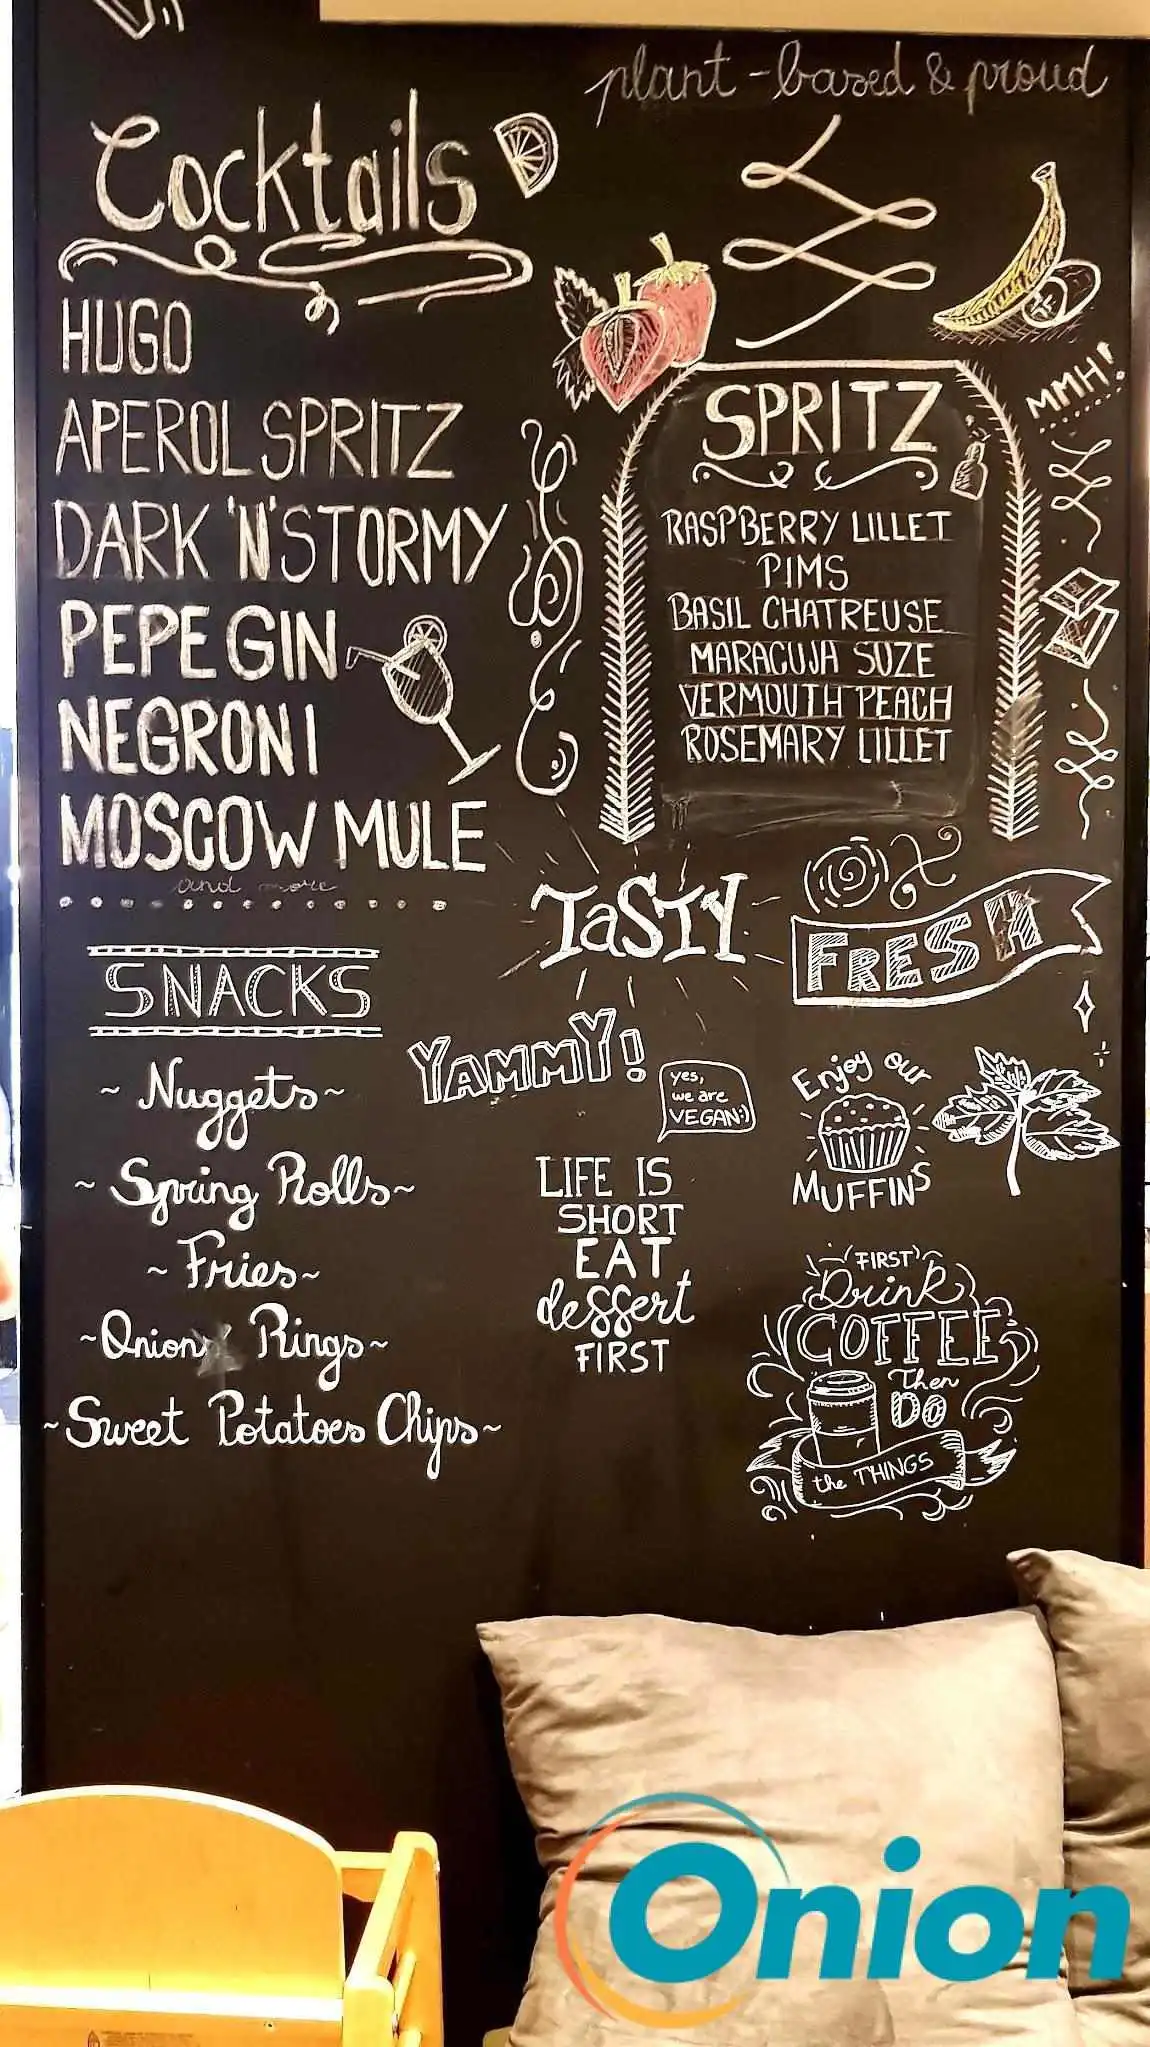 plant-based & proud
Cocktails
HUGO
APEROL SPRITZ
DARK 'N' STORMY
PEPE GIN
NEGRONI
MOSCOW MULE
and more
MMH!
SPRITZ
RASPBERRY LILLET
PIMS
BASIL CHATREUSE
MARACUJA SUZE
VERMOUTH PEACH
ROSEMARY LILLET
TaSTY
FRESH
SNACKS
~ Nuggets ~
~ Spring Rolls ~
~ Fries ~
~ Onion Rings ~
~ Sweet Potatoes Chips ~
YAMMY!
yes,
we are
VEGAN:)
Enjoy our
MUFFINS
LIFE IS
SHORT
EAT
dessert
FIRST
FIRST
Drink
COFFEE
Then
DO
the THINGS
Onion